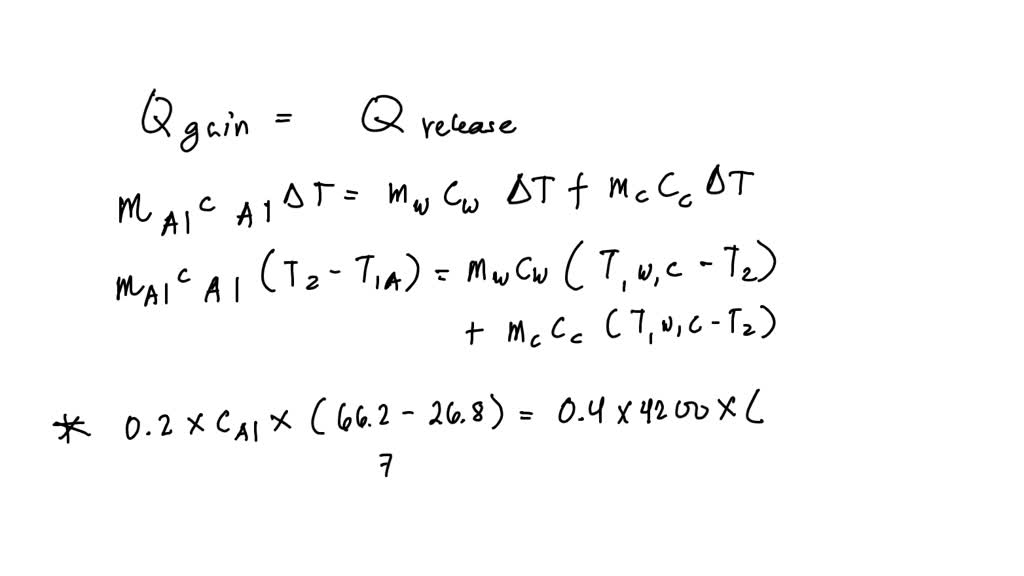 Q gain = Q release
m Al c Al ΔT = m w C w ΔT + m c C c ΔT
m Al c Al (T 2 - T 1A) = m w C w (T, w, c - T 2)
+ m c C c (T, w, c - T 2)
* 0.2 × C Al × (66.2 - 26.8) = 0.4 × 4200 × (
7